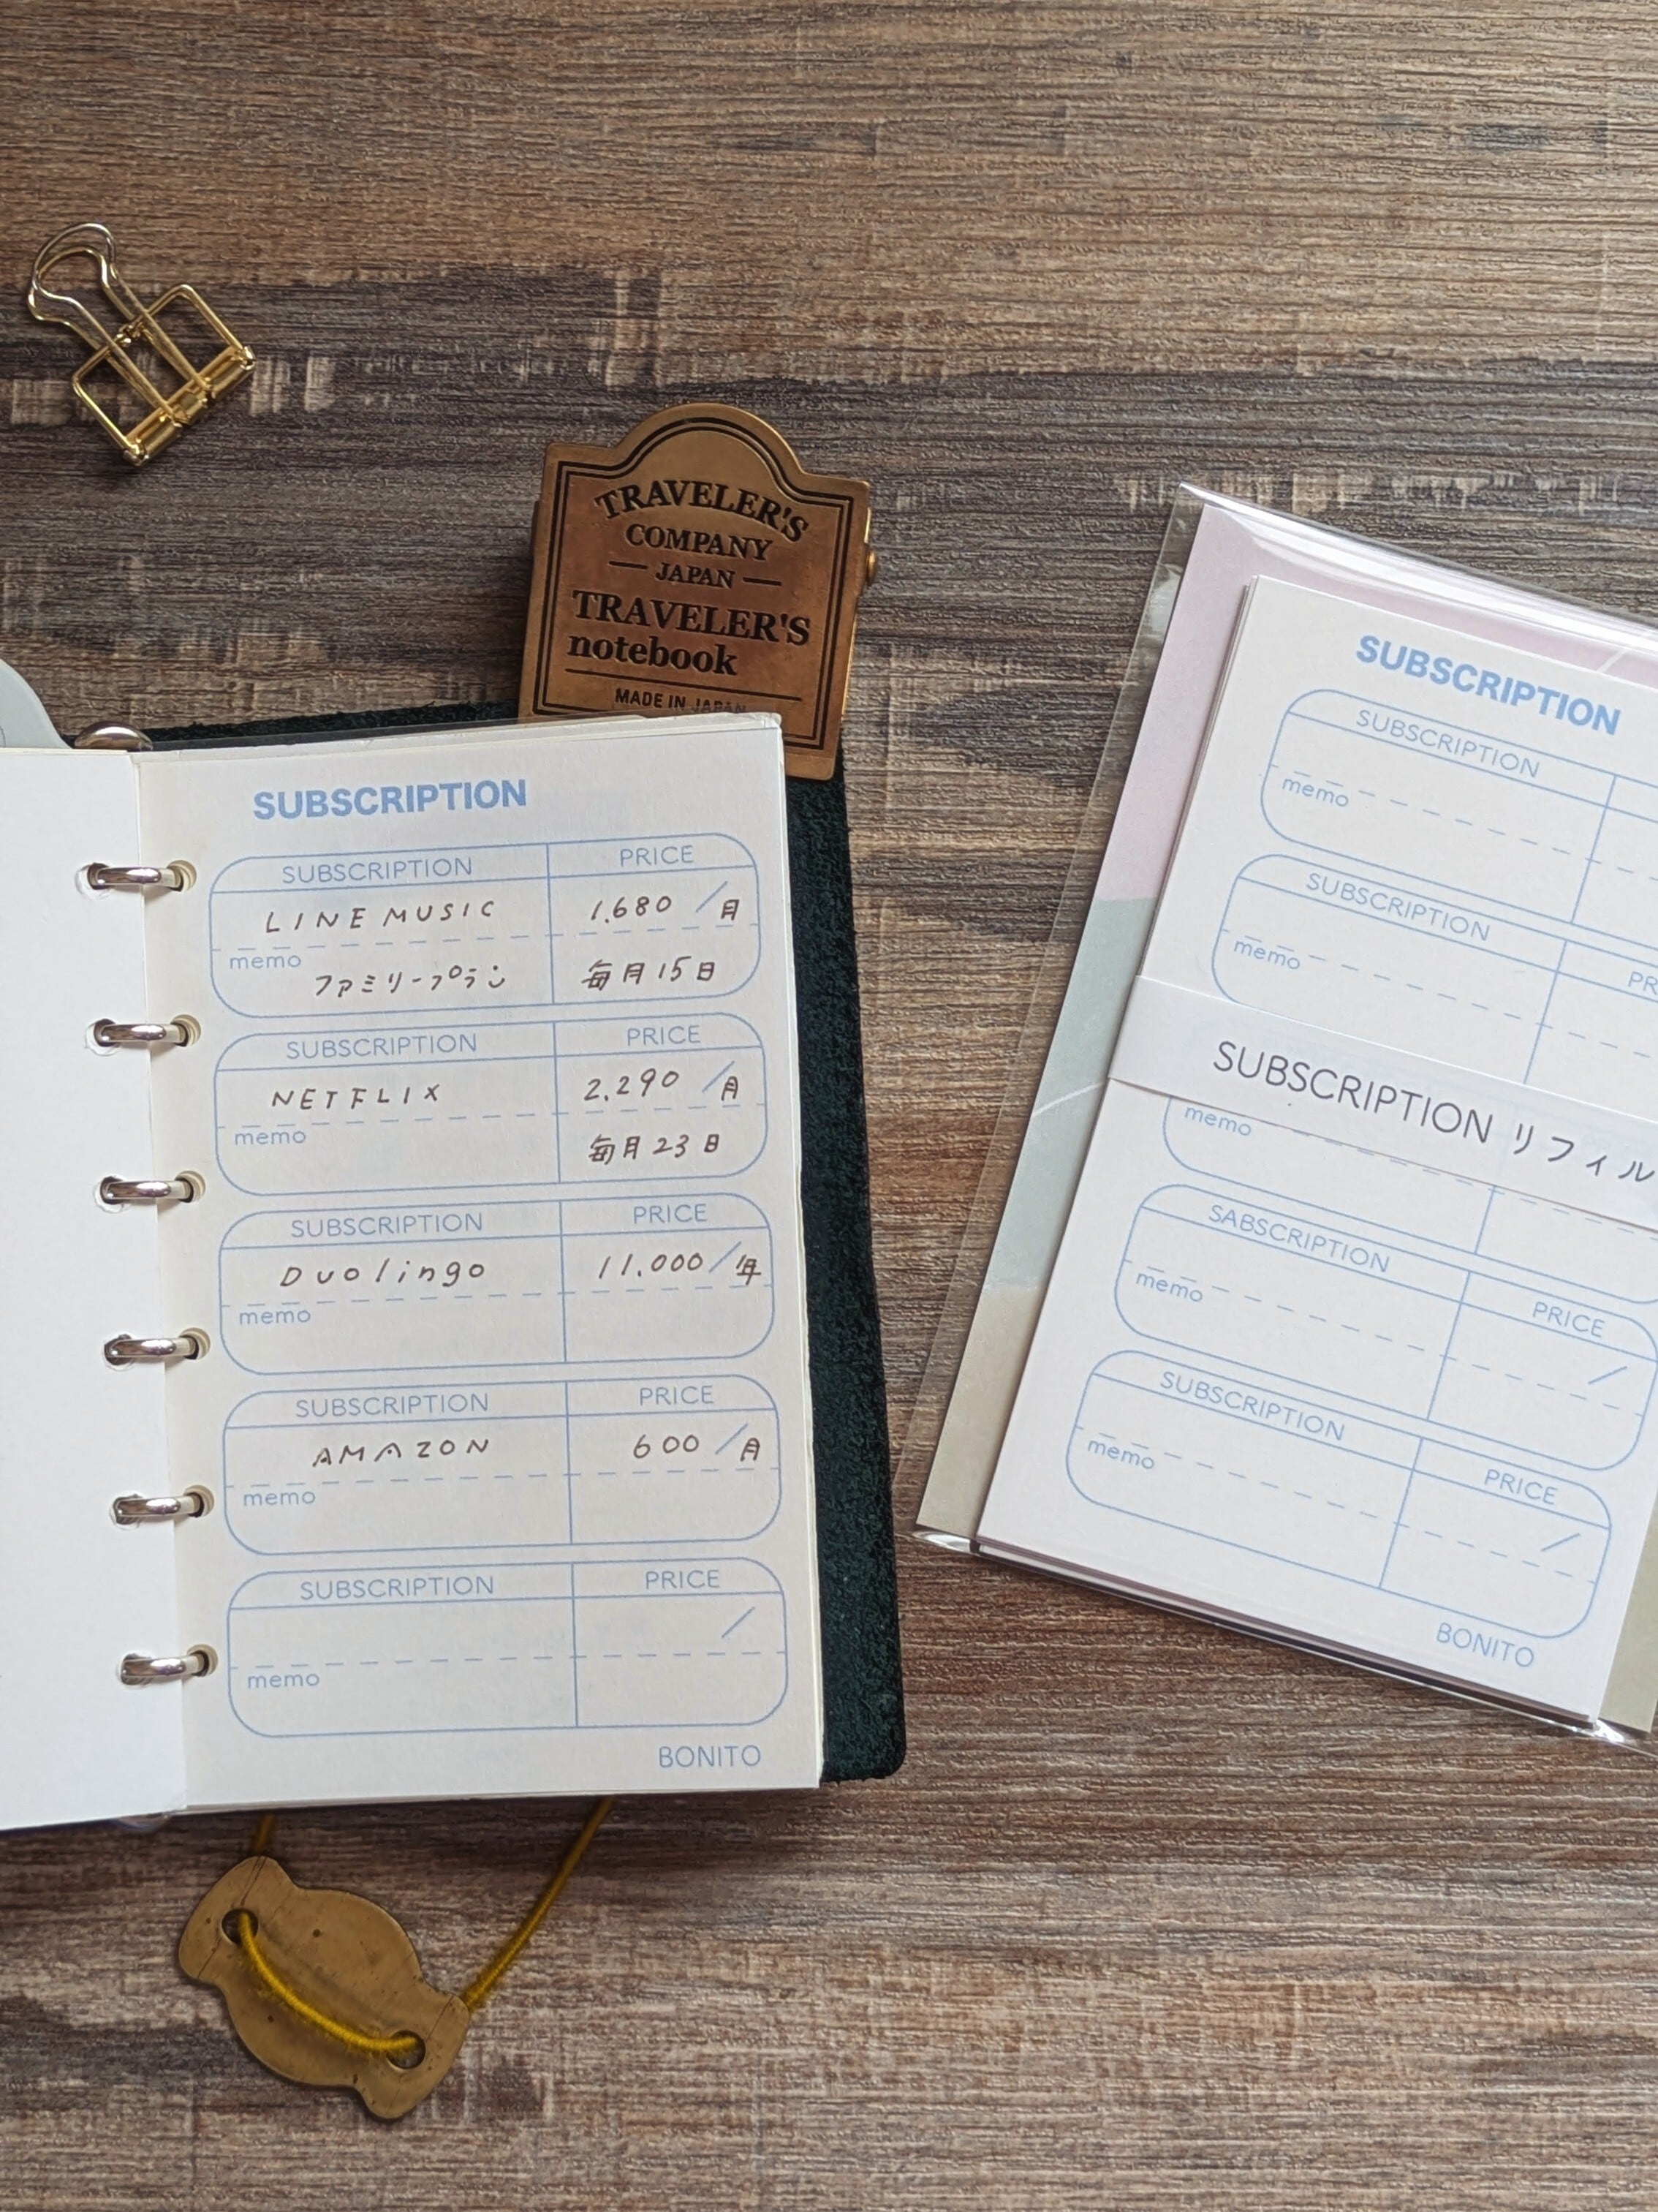 TRAVELER'S
COMPANY
JAPAN
TRAVELER'S
notebook
MADE IN JAPAN
SUBSCRIPTION
SUBSCRIPTION PRICE
LINE MUSIC 1.680 / 月
memo
ファミリープラン 毎月15日
SUBSCRIPTION PRICE
NETFLIX 2.290 / 月
memo
毎月23日
SUBSCRIPTION PRICE
Duolingo 11.000 / 年
memo
SUBSCRIPTION PRICE
AMAZON 600 / 月
memo
SUBSCRIPTION PRICE
/
memo
BONITO
SUBSCRIPTION
SUBSCRIPTION
memo
SUBSCRIPTION PR
memo
SUBSCRIPTION リフィル
memo
SABSCRIPTION PRICE
memo /
SUBSCRIPTION PRICE
memo /
BONITO